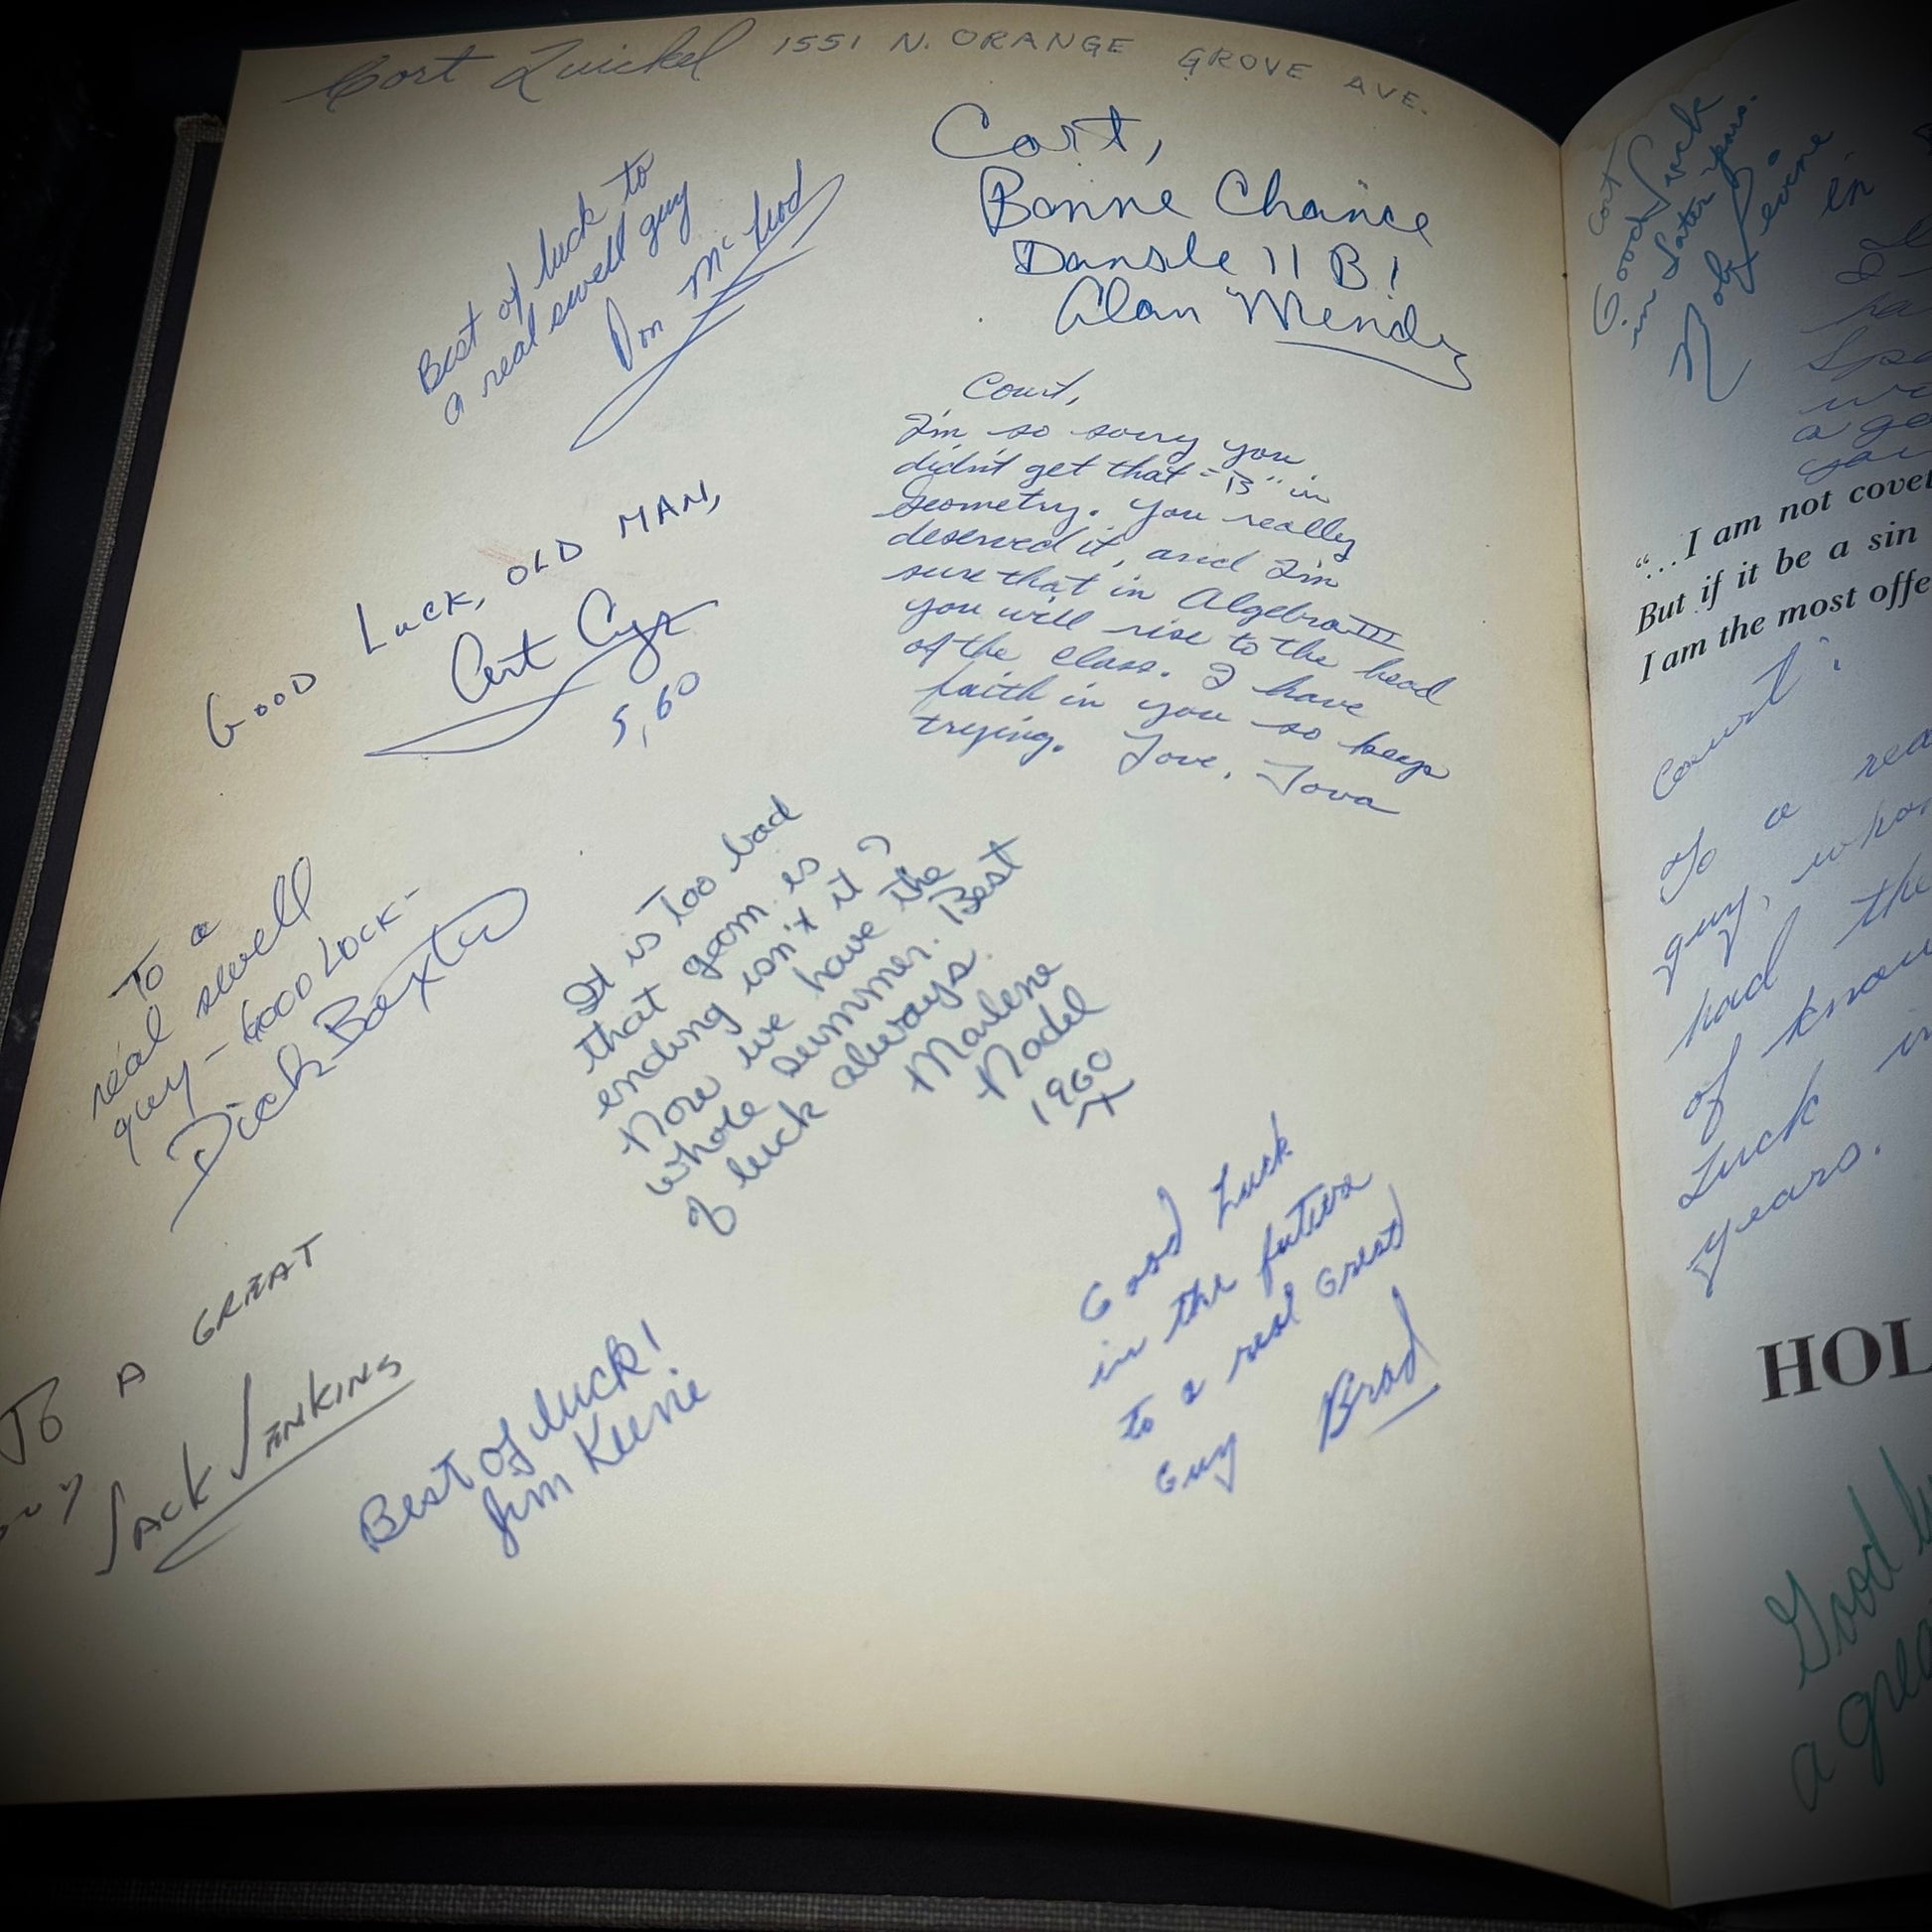 Cort Quickel 1551 N. ORANGE GROVE AVE.
Best of luck to
a real swell guy
Don McLeod
Cort,
Bonne Chance
Dansle 11 B!
Alan Mendz
Court,
I'm so sorry you
didn't get that "B" in
Geometry. You really
deserved it, and I'm
sure that in Algebra III
you will rise to the head
of the class. I have
faith in you so keep
trying. Love, Tova
GOOD LUCK, OLD MAN,
5,60
To a
real swell
guy - GOOD LUCK -
Dick Baxter
It is Too bad
that geom. is
ending isn't it?
Now we have the
whole summer. Best
of luck always.
Marlene
Nadel
1960
TO A GREAT
GUY
JACK JENKINS
Best of luck!
Jim Keene
Good Luck
in the future
to a real Great
Guy Brad
Cort
Good Luck
in later years.
Levine
in
"...I am not covet
But if it be a sin
I am the most offe
Court:
To a rea
guy, who
had the
of know
Luck in
years.
HOL
Good lu
a grea